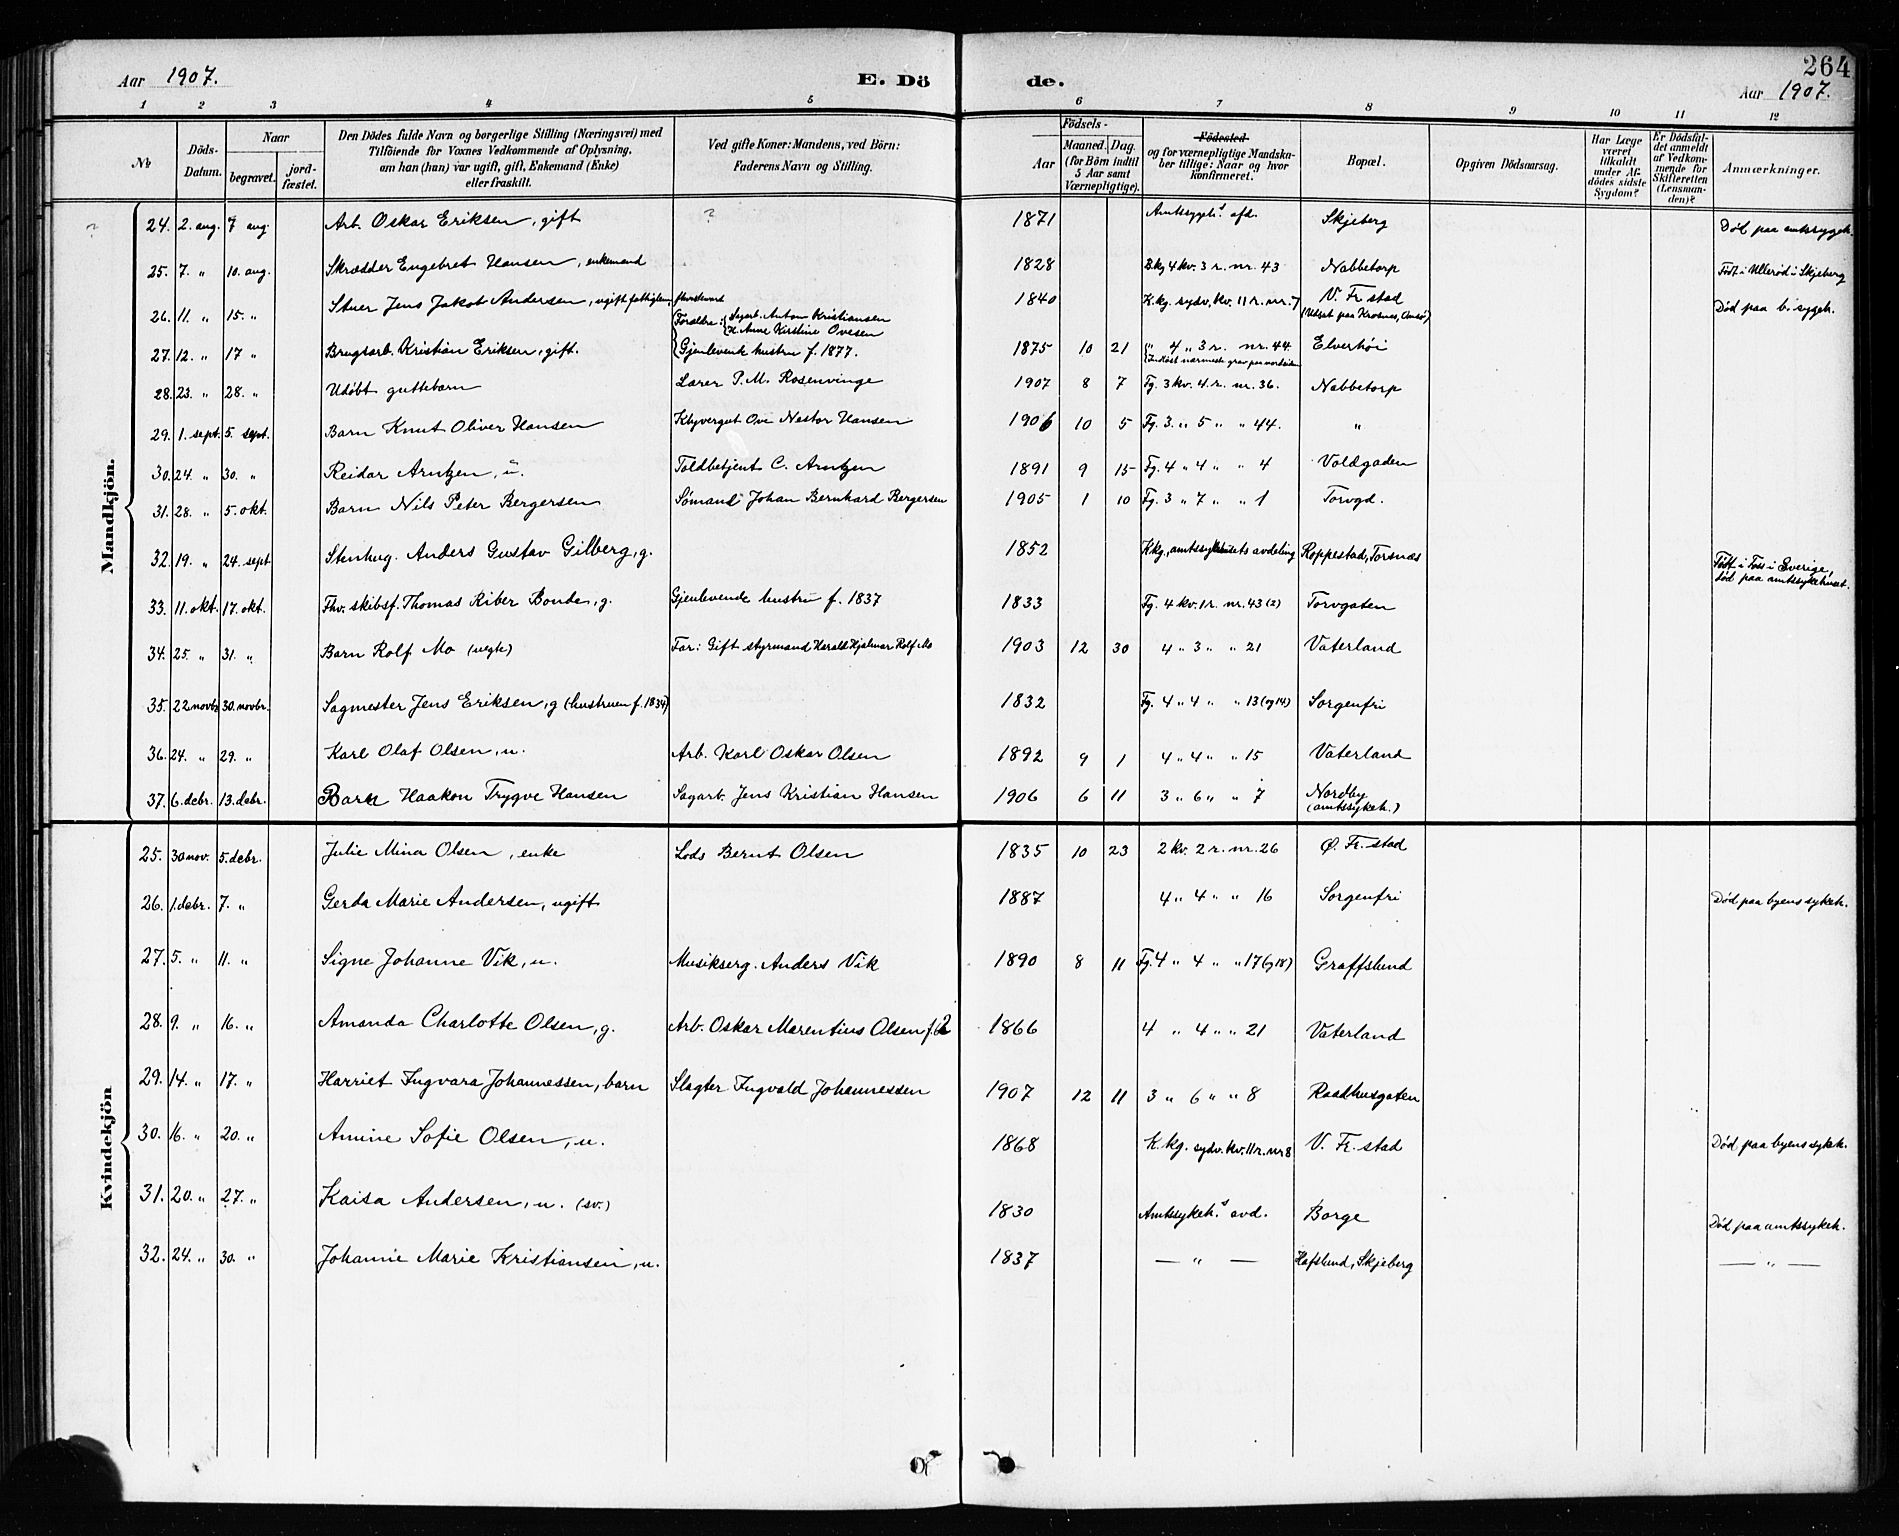 264
Aar 1907. E. Dö de. Aar 1907.
1 2 3 4 5 6 7 8 9 10 11 12
No Döds-Datum. Naar begravet. jord-fæstet. Den Dödes fulde Navn og borgerlige Stilling (Næringsvei) med Tilföiende for Voxnes Vedkommende af Oplysning, om han (hun) var ugift, gift, Enkemand (Enke) eller fraskilt. Ved gifte Koner: Mandens, ved Börn: Faderens Navn og Stilling. Födsels- Aar Maaned. Dag. (for Börn indtil 5 Aar samt Værnepligtige). Födested og for værnepligtige Mandskaber tillige: Naar og hvor konfirmeret. Bopæl. Opgiven Dödsaarsag. Har Læge været tilkaldt under Afdödes sidste Sygdom? Er Dödsfaldet anmeldt af Vedkommende for Skifteretten (Lensmanden)? Anmærkninger.
Mandkjön.
? 24. 2. aug. 7 aug. Arb. Oskar Eriksen, gift ? 1871 Amtssygeh.s afd. Skjeberg Död paa amtssygeh.
25. 7. " 10. aug. Skrædder Engebret Hansen, enkemand 1828 B.kg 4 kv. 3 r. nr. 43 Nabbetorp Födt i Ullerød i Skjeberg
26. 11. " 15. " Stuer Jens Jakob Andersen, ugift 1840 K.kg. sydv. kv. 11 r. nr. 7 V. Fr.stad Död paa b. sygeh.
27. 12. " 17 " Brugsarb. Kristian Eriksen, gift. Forældre: Sagarb. Anton Kristiansen H. Anne Kirstine Ovesen Gjenlevende hustru f. 1877. 1875 10 21 " 4 " 3 r. nr. 44 Elverhöi
28. 23. " 28. " Udöbt guttebarn Lærer P. M. Rosenvinge 1907 8 7 Fg. 3 kv. 4. r. nr. 36. Nabbetorp
29. 1. sept. 5. sept. Barn Knut Oliver Hansen Ove Nestor Hansen 1906 10 5 Fg. 3. " 5 " " 44. "
30. 24 " 30. " Reidar Arntzen, u. Toldbetjent C. Arntzen 1891 9 15 Fg. 4 " 4 " " 4 Voldgaden
31. 28. " 5. okt. Barn Nils Peter Bergersen Sömand Johan Bernhard Bergersen 1905 1 10 Fg. 3 " 7 " " 1 Torvgd.
32. 19. " 24. sept Stenhug. Anders Gustav Gilberg, g. 1852 K.kg., amtssykehusets avdeling Roppestad, Torsnæs Födt i Foss i Sverige, död paa amtssykehuset.
33. 11. okt. 17. okt. Fhv. skibsf. Thomas Riber Bonde, g. Gjenlevende hustru f. 1837 1833 Fg. 4 kv. 1 r. nr. 43 (2) Torvgaten
34. 25. " 31. " Barn Rolf Mo (uegte) Far: Gift styrmand Harald Hjalmar Rolf Mo 1903 12 30 4 " 3 " " 21 Vaterland
35. 22 novbr 30. novbr. Sagmester Jens Eriksen, g (hustruen f. 1834) 1832 Fg. 4 " 4 " " 13 (og 14) Sorgenfri
36. 24. " 29. " Karl Olaf Olsen, u. Arb. Karl Oskar Olsen 1892 9 1 4 " 4 " " 15 Vaterland
37. 6. debr. 13. debr. Barn Haakon Trygve Hansen Sagarb. Jens Kristian Hansen 1906 6 11 3 " 6 " " 7 Nordby (amtssykeh.)
Kvindekjön
25. 30 nov. 5. debr. Julie Mina Olsen, enke Lods Bernt Olsen 1835 10 23 2 kv. 2 r. nr. 26 Ø. Fr.stad
26. 1. debr. 7. " Gerda Marie Andersen, ugift 1887 4 " 4 " " 16 Sorgenfri Död paa byens sykeh.
27. 5. " 11. " Signe Johanne Vik, u. Musikserg. Anders Vik 1890 8 11 Fg. 4 " 4 " " 17 (og 18) Graffslund
28. 9. " 16. " Amanda Charlotte Olsen, g. Arb. Oskar Marentius Olsen 1866 4 " 4 " " 21 Vaterland
29. 14. " 17. " Harriet Ingvara Johannessen, barn Slagter Ingvald Johannessen 1907 12 11 3 " 6 " " 8 Raadhusgaten
30. 16. " 20. " Amine Sofie Olsen, u. 1868 K.kg. sydv. kv. 11 r. nr 8 V. Fr.stad Död paa byens sykh.
31. 20. " 27. " Kaisa Andersen, u. (sv.) 1830 Amtssykeh.s avd. Borge Död paa amtssykeh.
32. 24. " 30. " Johanne Marie Kristiansen, u. 1837 — " — Hafslund, Skjeberg — " —